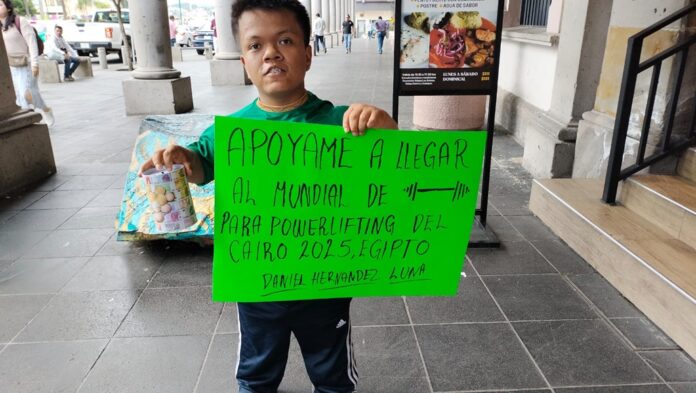 POSTRE • AGUA DE SABOR
APOYAME A LLEGAR
AL MUNDIAL DE
PARA POWERLIFTING DEL
CAIRO 2025, EGIPTO
DANIEL HERNANDEZ LUNA
adidas